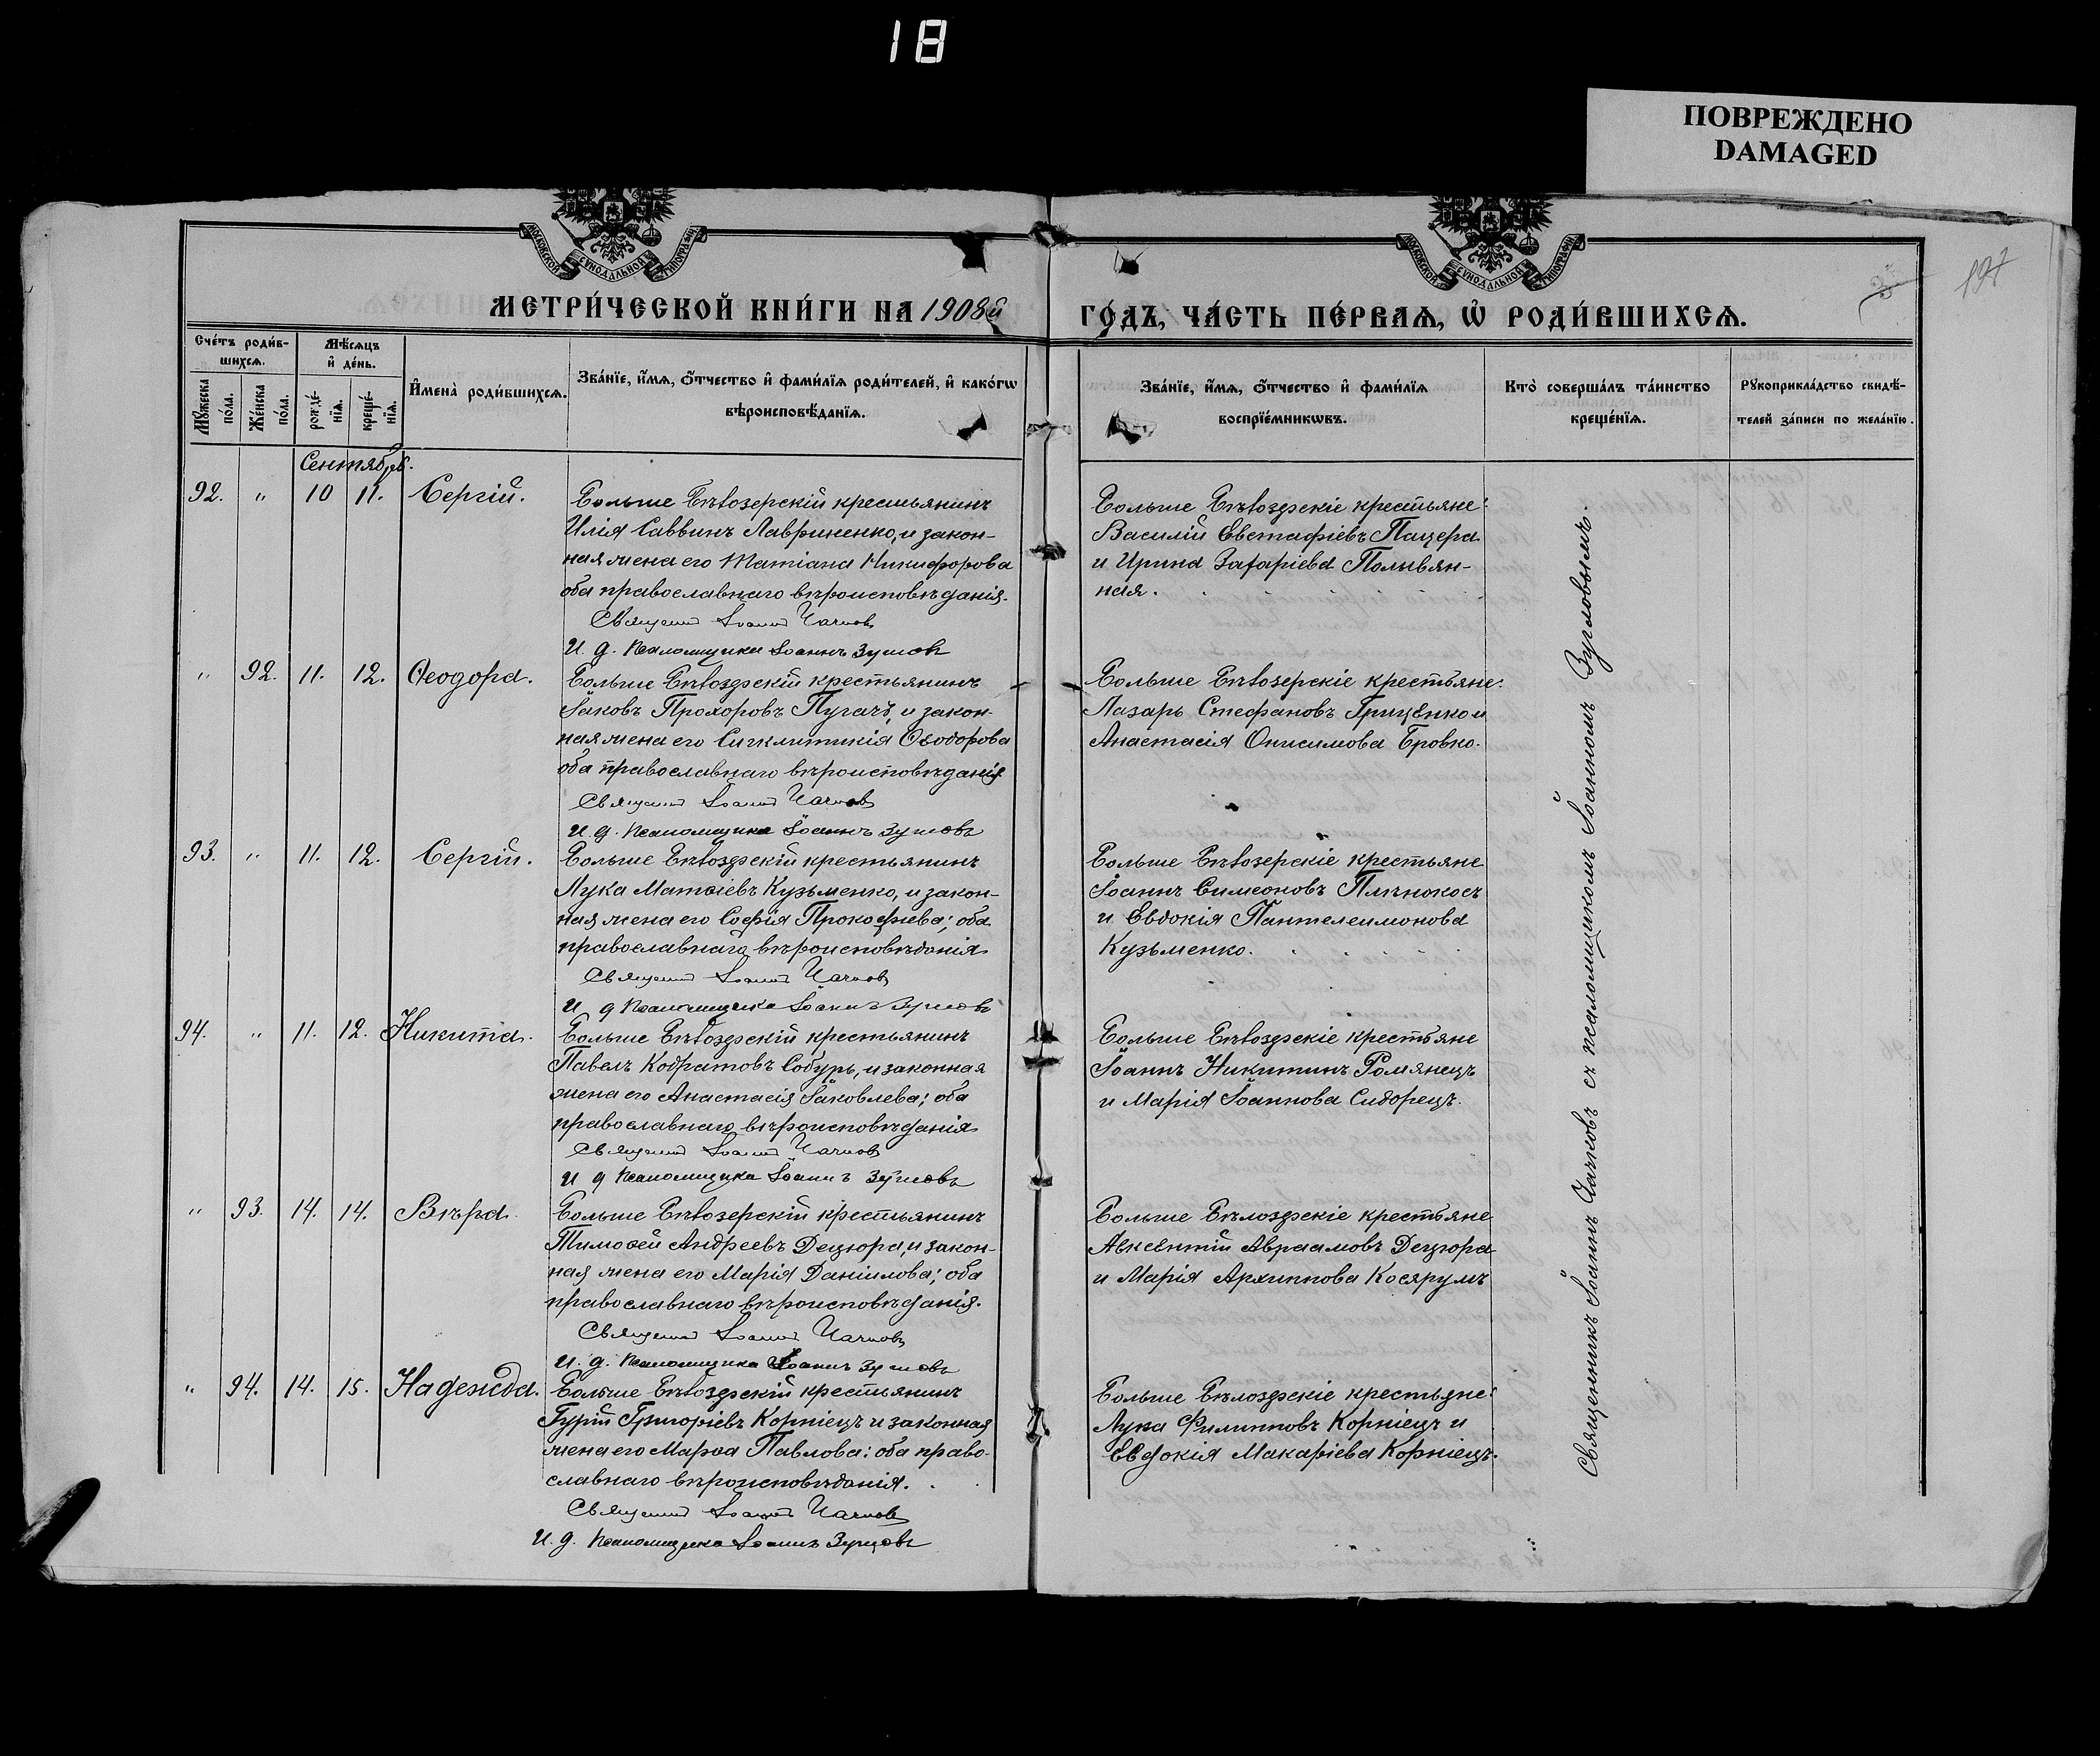 18
ПОВРЕЖДЕНО
DAMAGED
МОСКОВСКОЙ СѴНОДАЛЬНОЙ ТИПОГРАФІИ
МОСКОВСКОЙ СѴНОДАЛЬНОЙ ТИПОГРАФІИ
197
МЕТРИ́ЧЕСКОЙ КНИ́ГИ НА 1908й
ГО́ДЪ, ЧА́СТЬ ПЕ́РВАѦ, Ѡ҆ РОДИ́ВШИХСѦ.
Сче́тъ роди́в-
шихсѧ.
Мѣ́сѧцъ
и҆ де́нь.
Мꙋ́жеска
по́ла.
Же́нска
по́ла.
рожде́-
нїѧ.
креще́-
нїѧ.
И҆мена̀ роди́вшихсѧ.
Зва́нїе, и҆́мѧ, ѻ҆́тчество и҆ фами́лїѧ роди́телей, и҆ како́гѡ
вѣроисповѣ́данїѧ.
Зва́нїе, и҆́мѧ, ѻ҆́тчество и҆ фами́лїѧ
воспрїе́мникѡвъ.
Кто̀ соверша́лъ та́инство
креще́нїѧ.
Рꙋкоприкла́дство свидѣ́-
телей за́писи по жела́нїю.
Сентябрь.
92. " 10 11. Сергій.
Больше Бѣлозерскій крестьянинъ
Илія Саввинъ Лавриненко, и закон-
ная жена его Татіана Никифорова
оба православнаго вѣроисповѣданія.
Священник Іоанн Чачков
И. д. Псаломщика Іоаннъ Зуиловъ
Больше Бѣлозерскіе крестьяне:
Василій Евстафіевъ Пацера
и Ирина Захаріева Поливян-
ная.
" 92. 11. 12. Ѳеодора.
Больше Бѣлозерскій крестьянинъ
Іаковъ Прохоровъ Пугачъ, и закон-
ная жена его Сигклитикія Ѳеодорова
оба православнаго вѣроисповѣданія
Священник Іоанн Чачков
И. д. Псаломщика Іоаннъ Зуиловъ
Больше Бѣлозерскіе крестьяне:
Лазарь Стефановъ Гриценко и
Анастасія Онисимова Бровко.
93. " 11. 12. Сергій.
Больше Бѣлозерскій крестьянинъ
Лука Матѳіевъ Кузьменко, и закон-
ная жена его Софія Прокофіева; оба
православнаго вѣроисповѣданія
Священник Іоанн Чачков
И д Псаломщика Іоаннъ Зуиловъ
Больше Бѣлозерскіе крестьяне
Іоаннъ Симеоновъ
и Евдокія Пантелеимонова
Кузьменко.
94. " 11. 12. Никита.
Больше Бѣлозерскій крестьянинъ
Павелъ Кодратовъ Собурь, и законная
жена его Анастасія Іаковлева; оба
православнаго вѣроисповѣданія
Священник Іоанн Чачков
И д Псаломщика Іоаннъ Зуиловъ
Больше Бѣлозерскіе крестьяне
Іоаннъ Никитинъ Ромянецъ
и Марія Іоаннова Сидорецъ.
" 93. 14. 14. Вѣра
Больше Бѣлозерскій крестьянинъ
Тимоѳей Андреевъ Децюра, и закон-
ная жена его Марія Даніилова; оба
православнаго вѣроисповѣданія.
Священник Іоанн Чачков
И. д. Псаломщика Іоаннъ Зуиловъ
Больше Бѣлозерскіе крестьяне
Авксентій Авраамовъ Децюра
и Марія Архиппова Косярумъ
" 94. 14. 15. Надежда.
Больше Бѣлозерскій крестьянинъ
Гурій Григоріевъ Корніецъ и законная
жена его Марѳа Павлова: оба право-
славнаго вѣроисповѣданія.
Священник Іоанн Чачков
И. д. Псаломщика Іоаннъ Зуиловъ
Больше Бѣлозерскіе крестьяне:
Лука Филипповъ Корніецъ и
Евдокія Макаріева Корніецъ.
Священникъ Іоаннъ Чачковъ съ псаломщикомъ Іоанномъ